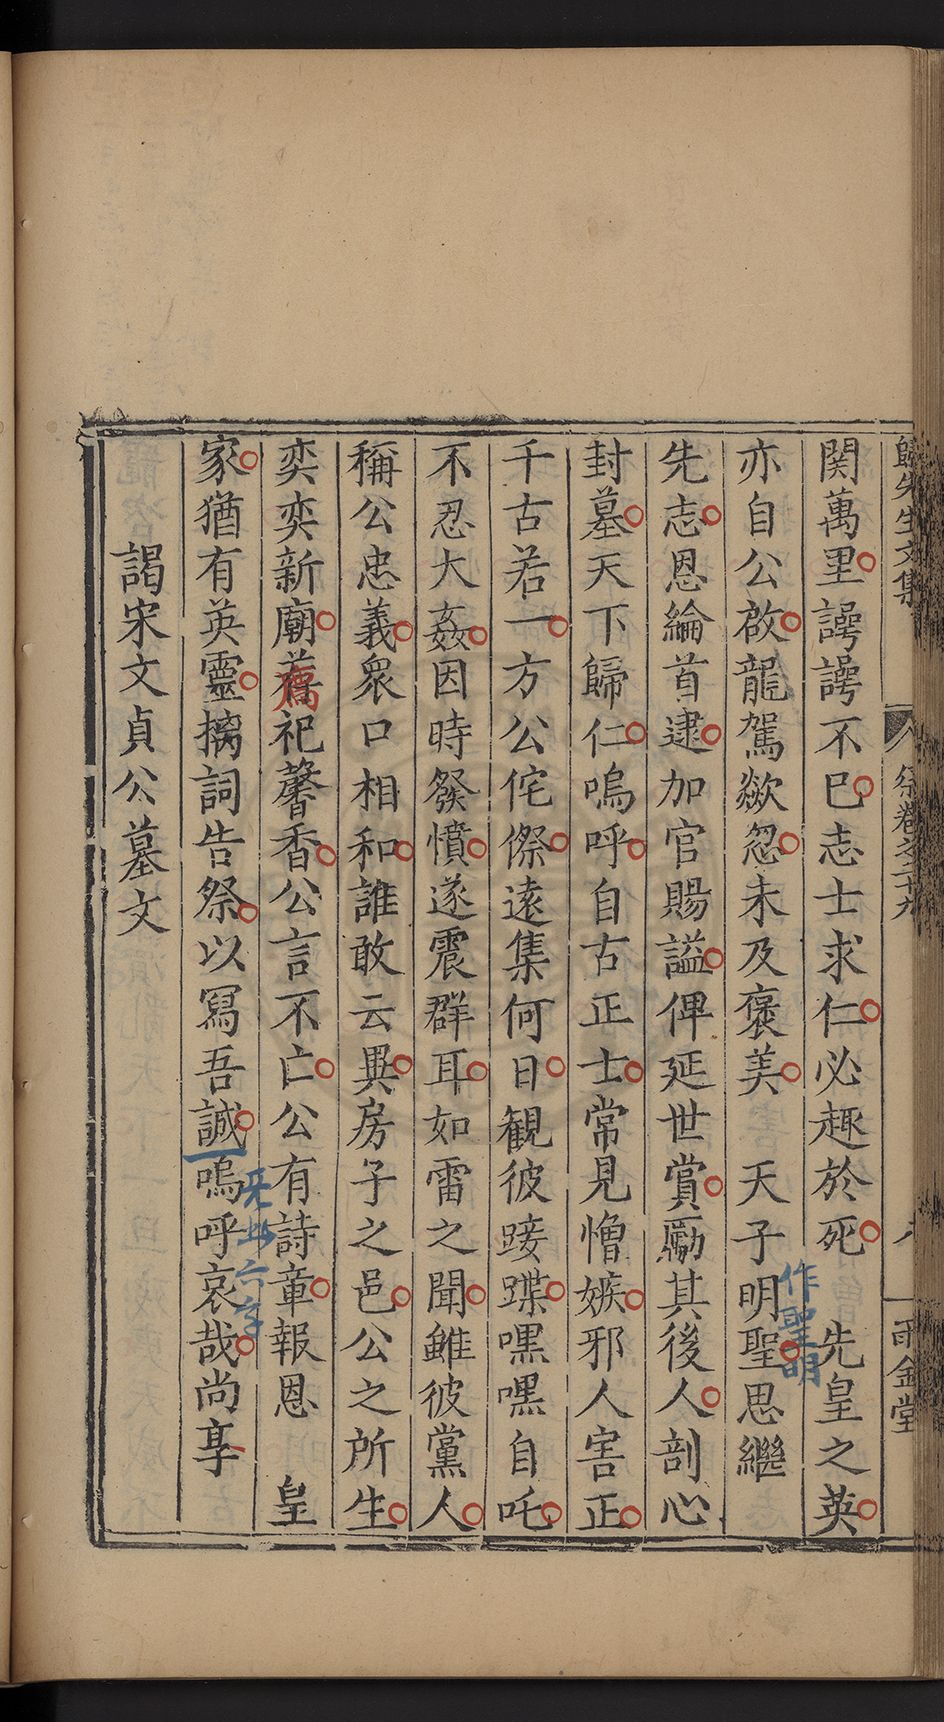 歸先生文集
祭卷之二十九
八
雨金堂
関萬里謣謣不已志士求仁必趣於死 先皇之英
亦自公啟龍駕歘忽未及褒美 天子明聖思繼
作聖明
先志恩綸首逮加官賜謚俾延世賞勵其後人剖心
封墓天下歸仁嗚呼自古正士常見憎嫉邪人害正
千古若一方公侘傺遠集何日観彼踥蹀嘿嘿自吒
不忍大姦因時發憤遂震群耳如雷之聞雖彼黨人
稱公忠義衆口相和誰敢云異房子之邑公之所生
奕奕新廟舊祀馨香公言不亡公有詩章報恩 皇
薦
家猶有英靈摛詞告祭以寫吾誠嗚呼哀哉尚享
无此六字
謁宋文貞公墓文